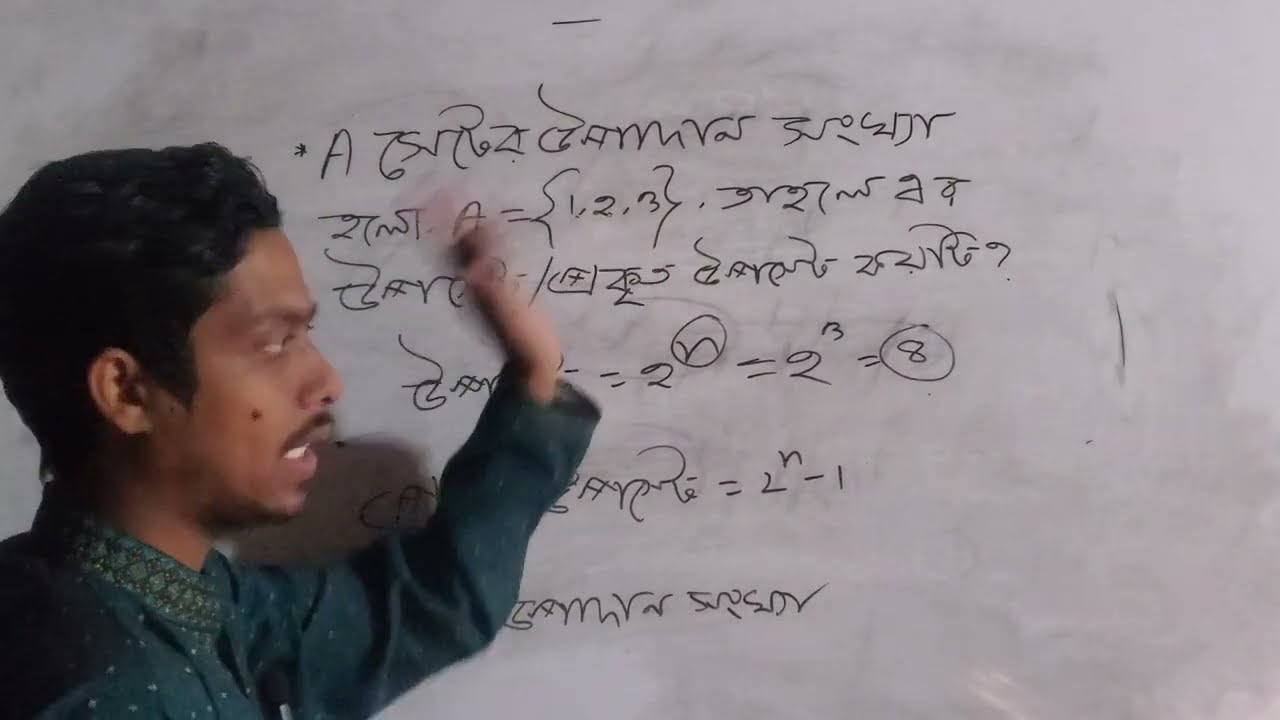 * A সেটের উপাদান সংখ্যা
হলো. A = {1, 2, 3}. তাহলে এর
/প্রকৃত উপসেট কয়টি?
= 2^n = 2^3 = 8
উপসেট = 2^n - 1
উপাদান সংখ্যা